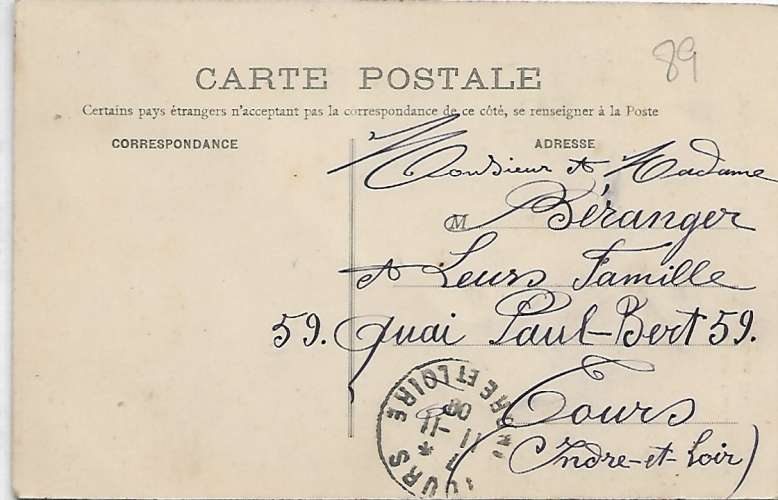 89
CARTE POSTALE
Certains pays étrangers n'acceptant pas la correspondance de ce côté, se renseigner à la Poste
CORRESPONDANCE
ADRESSE
Monsieur et Madame
M
Béranger
et Leurs Famille
59. Quai Paul-Bert 59.
Tours
(Indre-et-Loir)
TOURS
INDRE ET LOIRE
11-11
08